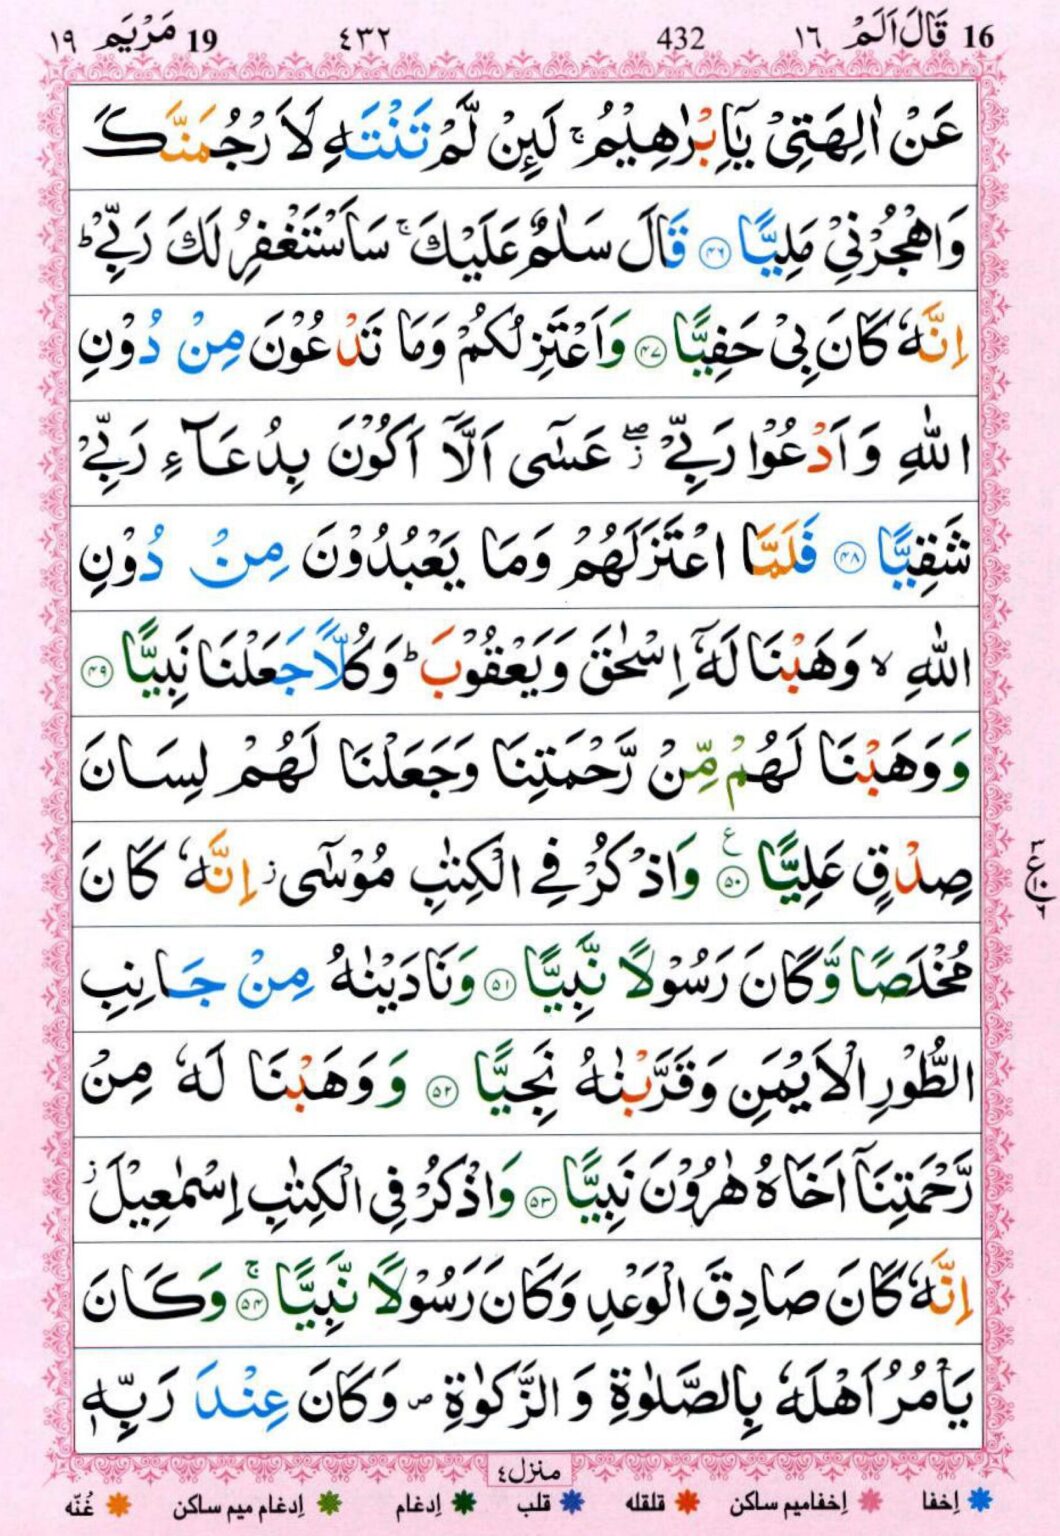 16 قَالَ اَلَمْ ١٦ 432 ٤٣٢ 19 مَرْيَم ١٩
عَنْ اٰلِهَتِىْ يٰۤاِبْرٰهِيْمُ ۚ لَئِنْ لَّمْ تَنْتَهِ لَاَرْجُمَنَّكَ
وَاهْجُرْنِىْ مَلِيًّا ۴۶ قَالَ سَلٰمٌ عَلَيْكَ ۚ سَاَسْتَغْفِرُ لَكَ رَبِّىْ ؕ
اِنَّهٗ كَانَ بِىْ حَفِيًّا ۴۷ وَاَعْتَزِلُكُمْ وَمَا تَدْعُوْنَ مِنْ دُوْنِ
اللّٰهِ وَاَدْعُوْا رَبِّىْ ۖز عَسٰۤى اَلَّاۤ اَكُوْنَ بِدُعَآءِ رَبِّىْ
شَقِيًّا ۴۸ فَلَمَّا اعْتَزَلَهُمْ وَمَا يَعْبُدُوْنَ مِنْ دُوْنِ
اللّٰهِ ۙ وَهَبْنَا لَهٗۤ اِسْحٰقَ وَيَعْقُوْبَ ؕ وَكُلًّا جَعَلْنَا نَبِيًّا ۴۹
وَوَهَبْنَا لَهُمْ مِّنْ رَّحْمَتِنَا وَجَعَلْنَا لَهُمْ لِسَانَ
صِدْقٍ عَلِيًّا ۵۰ ع وَاذْكُرْ فِى الْكِتٰبِ مُوْسٰۤى ز اِنَّهٗ كَانَ
مُخْلَصًا وَّكَانَ رَسُوْلًا نَّبِيًّا ۵۱ وَنَادَيْنٰهُ مِنْ جَانِبِ
الطُّوْرِ الْاَيْمَنِ وَقَرَّبْنٰهُ نَجِيًّا ۵۲ وَوَهَبْنَا لَهٗ مِنْ
رَّحْمَتِنَاۤ اَخَاهُ هٰرُوْنَ نَبِيًّا ۵۳ وَاذْكُرْ فِى الْكِتٰبِ اِسْمٰعِيْلَ ز
اِنَّهٗ كَانَ صَادِقَ الْوَعْدِ وَكَانَ رَسُوْلًا نَّبِيًّا ۵۴ ۚ وَكَانَ
يَاْمُرُ اَهْلَهٗ بِالصَّلٰوةِ وَالزَّكٰوةِ ص وَكَانَ عِنْدَ رَبِّهٖ
منزل ٤
اِخفا اِخفامیم ساکن قلقله قلب اِدغام اِدغام میم ساکن غُنّه